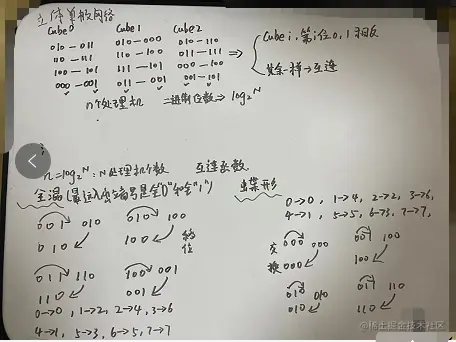 立体单级网络
Cube0 Cube1 Cube2
010-011 010-000 010-110
110-111 110-100 011-111
100-101 111-101 000-100
000-001 011-001 001-101
⇒ { Cube i. 第i位0,1相反
其余一样→互连
n个处理机 二进制位数⇒log₂N
n=log₂N:N处理机个数 互连函数.
全混(最远入出端号是全"0"和全"1")
001 010
010
010 100
100 移位
011 110
110
100 001
001
0→0, 1→2, 2→4, 3→6
4→1, 5→3, 6→5, 7→7
蝶形
0→0, 1→4, 2→2, 3→6,
4→1, 5→5, 6→3, 7→7,
交换
000 000
000
001 100
100
010 010
010
011 110
110
@稀土掘金技术社区